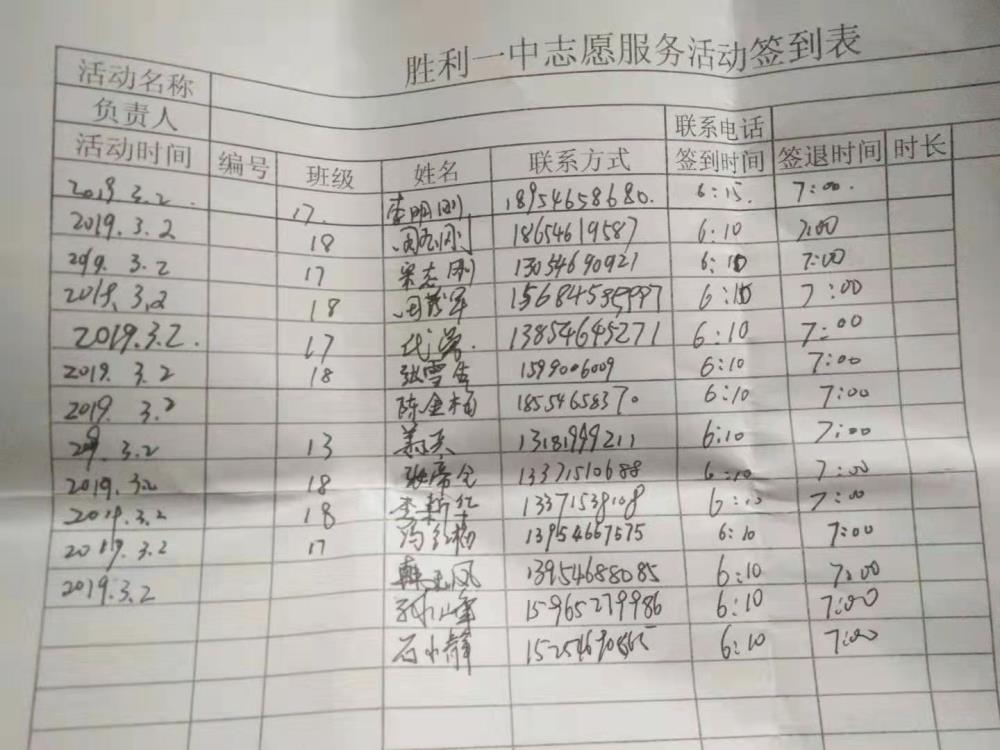 胜利一中志愿服务活动签到表
活动名称
负责人 联系电话
活动时间 编号 班级 姓名 联系方式 签到时间 签退时间 时长
2019 3.2. 17. 李明刚 18954658680. 6:15. 7:00.
2019.3.2 18 18654619587 6:10 7:00
2019. 3.2 17 宋志刚 13054690921 6:10 7:00
2019.3.2 18 6:10 7:00
2019.3.2. 17 13854645271 6:10 7:00
2019. 3.2 18 张雪 1599006009 6:10 7:00
2019. 3.2 陈金 18554658370 6:10 7:00
2019. 3.2 13 13181949211 6:10 7:00
2019.3.2 18 13371510688 6:10 7:00
2019.3.2 18 13371538108 6:10 7:00
2019.3.2 17 13954667575 6:10 7:00
2019.3.2 韩玉凤 13954688085 6:10 7:00
15965279986 6:10 7:00
石小静 6:10 7:00